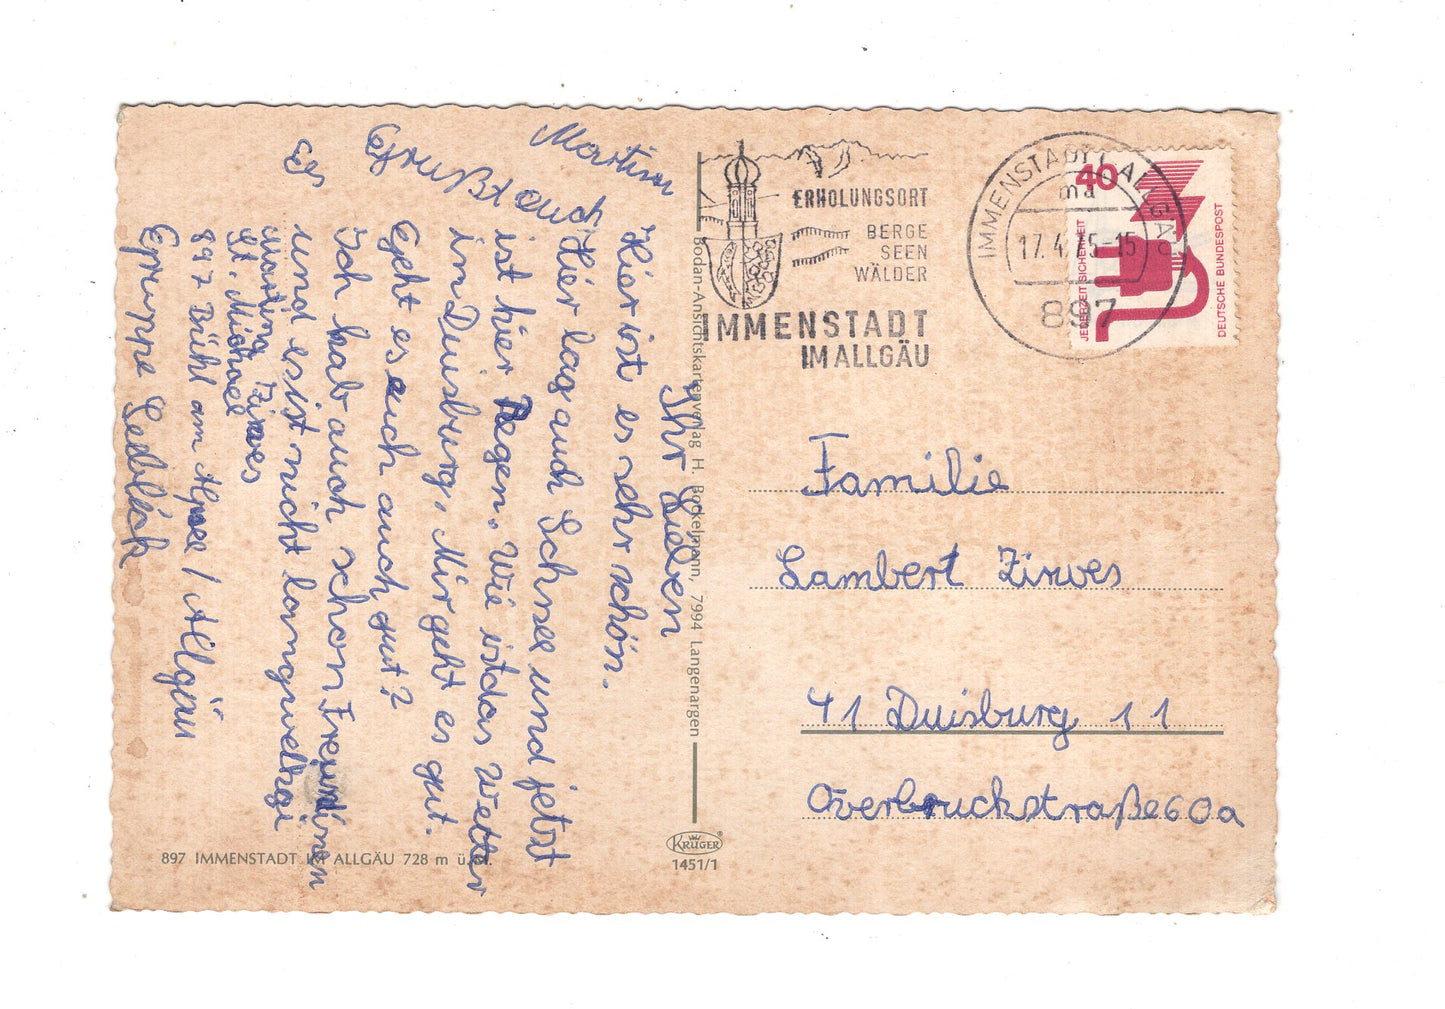 Ihr Lieben
Hier ist es sehr schön.
Hier lag auch Schnee und jetzt
ist hier Regen. Wie ist das Wetter
in Duisburg. Mir geht es gut.
Geht es euch auch gut?
Ich hab auch schon Freundinen
und es ist nicht langweiligi
Es
Grußt euch
Martina
Martina Zirwes
St. Michael
897 Bühl am Alpsee / Allgäu
Gruppe Sedlack
ERHOLUNGSORT
BERGE
SEEN
WÄLDER
IMMENSTADT
IM ALLGÄU
IMMENSTADT i. ALLGÄU
ma
17.4.75-15
897
40
JEDERZEIT SICHERHEIT
DEUTSCHE BUNDESPOST
Familie
Lambert Zirwes
41 Duisburg 11
Overbruckstraße 60a
Bodan-Ansichtskartenverlag H. Bockelmann, 7994 Langenargen
KRÜGER
1451/1
897 IMMENSTADT IM ALLGÄU 728 m ü. M.